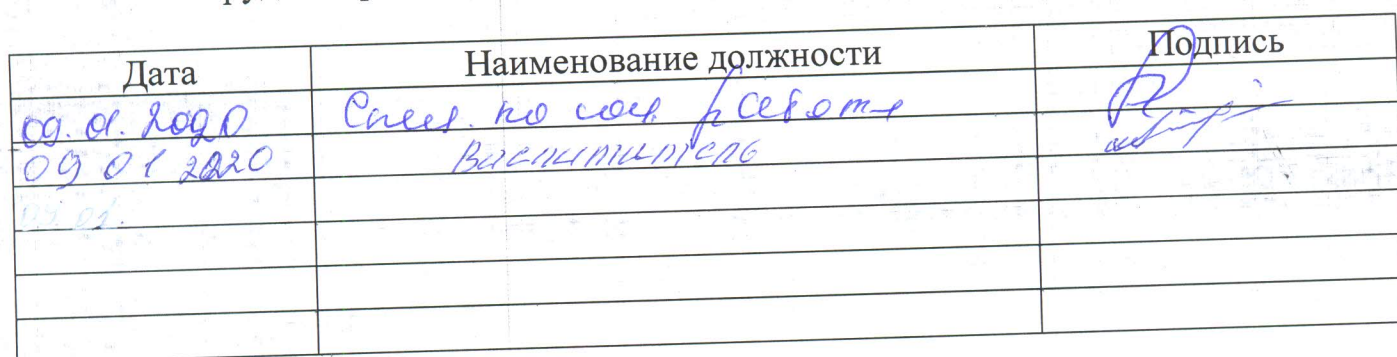 Дата Наименование должности Подпись
09.01.2020 Спец. по соц. работе
09 01 2020 Воспитатель
09.01.